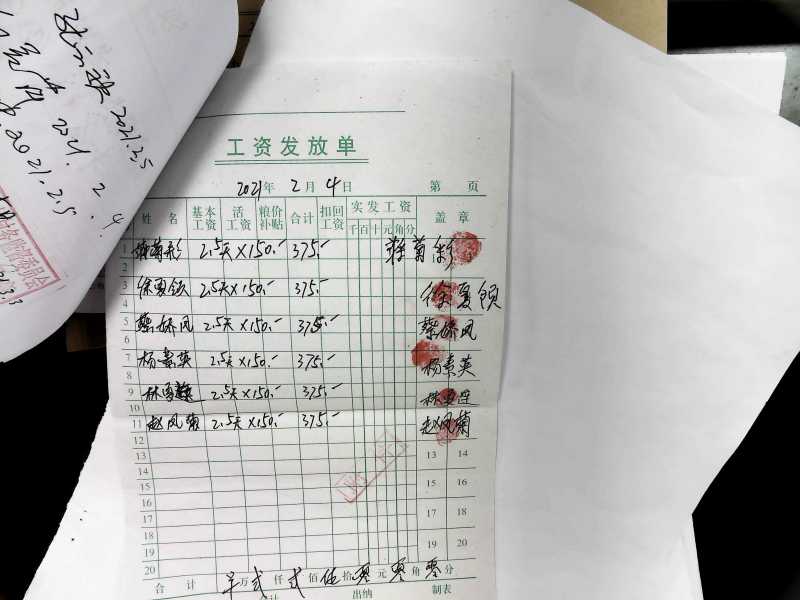 2021.2.5
2021.2.4.
2021.2.5
工资发放单
2021年 2月 4日 第 页
姓名 基本工资 活工资 粮价补贴 合计 扣回工资 实发工资 盖章
千百十元角分
1 2.5天×150.- 375.- 菊彩
2
3 徐夏领 2.5天×150.- 375.- 徐夏领
4
5 蔡娇凤 2.5天×150.- 375.- 蔡娇凤
6
7 杨素英 2.5天×150.- 375.- 杨素英
8
9 林 2.5天×150.- 375.- 林
10
11 赵凤菊 2.5天×150.- 375.- 赵凤菊
12
13 13 14
14
15 15 16
16
17 17 18
18
19 19 20
20
合计 万 贰仟 贰佰 伍拾 零元 零角 零分
出纳 制表